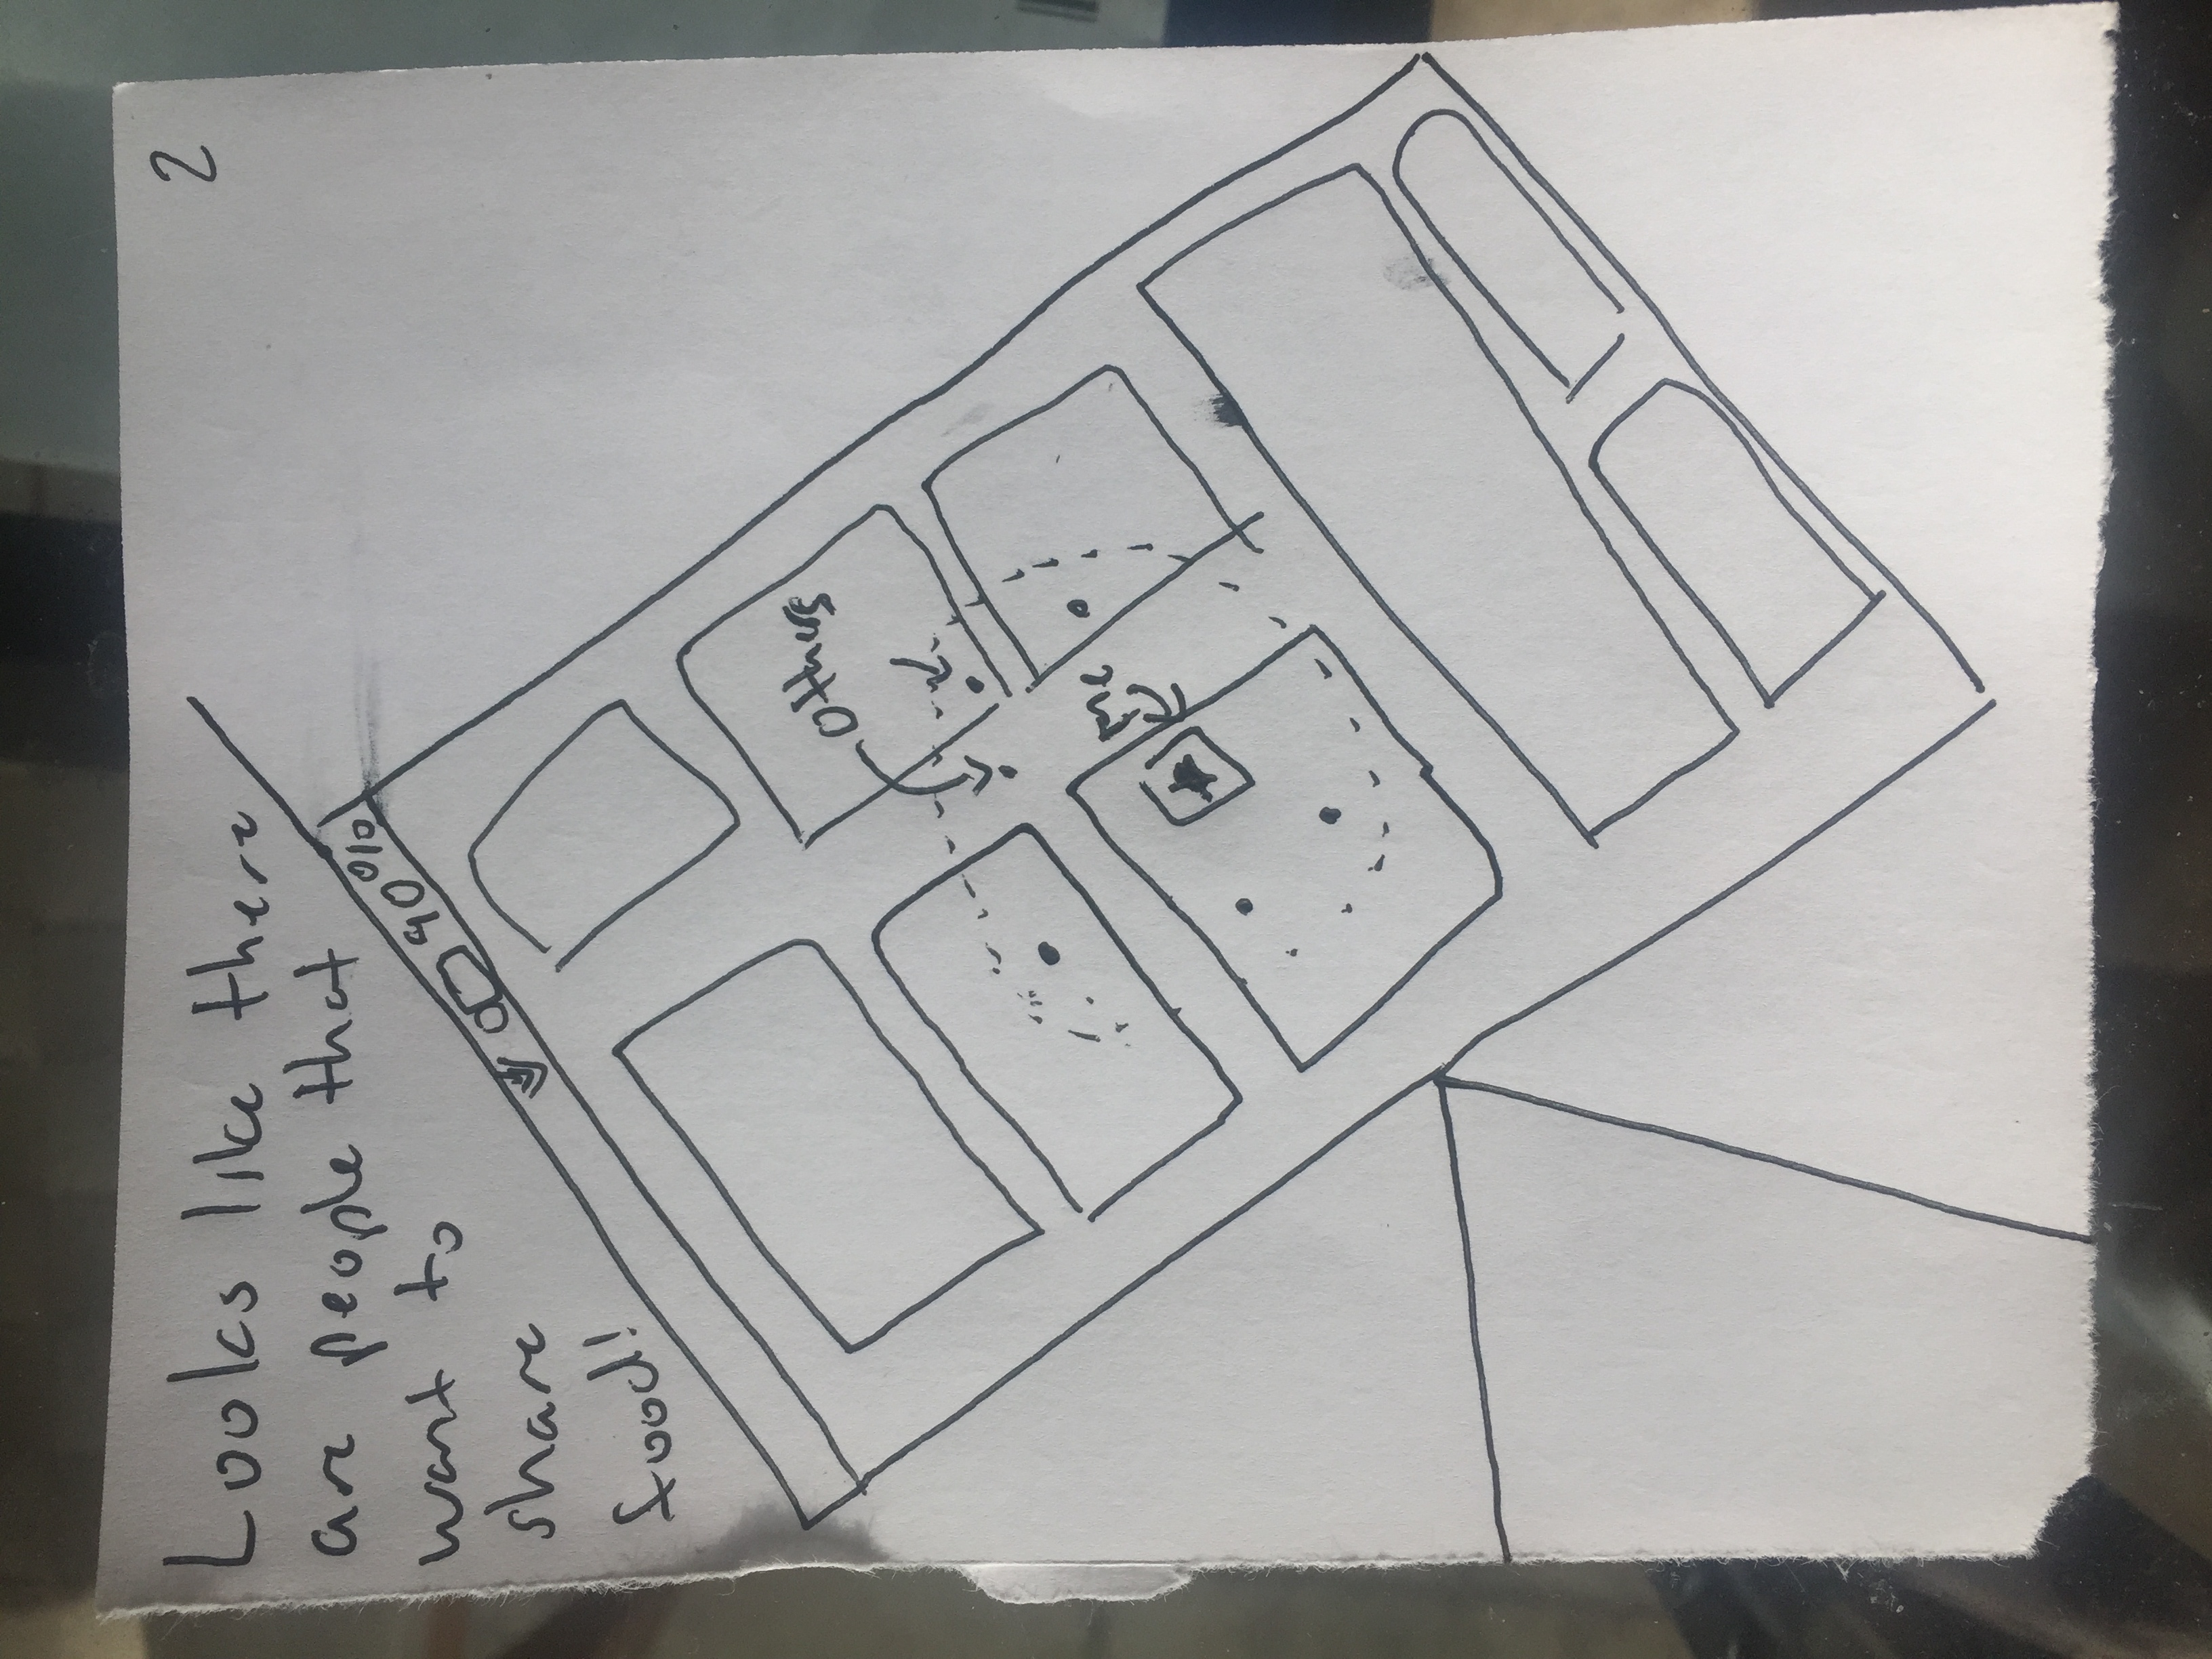 2
Looks like there
are people that
want to
share
food!
90%
Others
Me